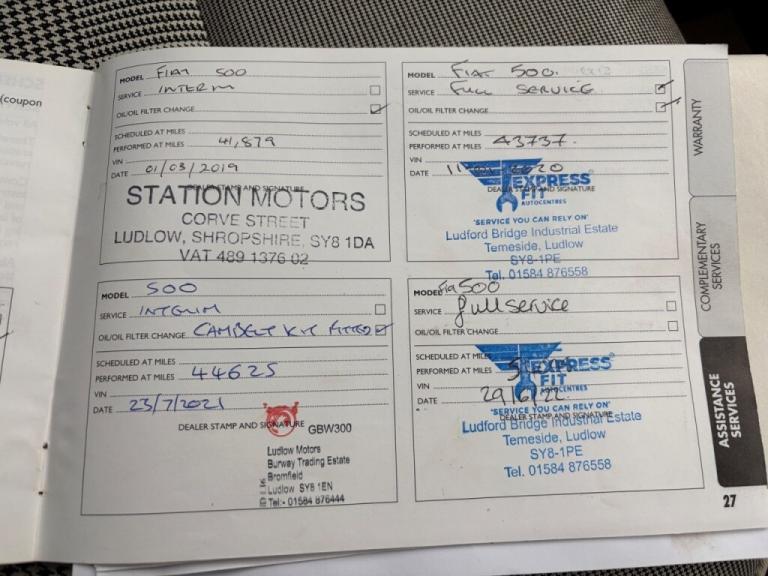 (coupon
MODEL FIAT 500
SERVICE INTERIM
OIL/OIL FILTER CHANGE
SCHEDULED AT MILES
PERFORMED AT MILES 41,879
VIN
DATE 01/03/2019
DEALER STAMP AND SIGNATURE
STATION MOTORS
CORVE STREET
LUDLOW, SHROPSHIRE, SY8 1DA
VAT 489 1376 02
MODEL FIAT 500.
SERVICE FULL SERVICE
OIL/OIL FILTER CHANGE
SCHEDULED AT MILES
PERFORMED AT MILES 43737.
VIN
DATE 2020
EXPRESS
DEALER STAMP AND SIGNATURE
FIT
AUTOCENTRES
'SERVICE YOU CAN RELY ON'
Ludford Bridge Industrial Estate
Temeside, Ludlow
SY8-1PE
Tel. 01584 876558
MODEL 500
SERVICE INTERIM
OIL/OIL FILTER CHANGE CAMBELT KIT FITTED
SCHEDULED AT MILES
PERFORMED AT MILES 44625
VIN
DATE 23/7/2021
DEALER STAMP AND SIGNATURE
GBW300
Ludlow Motors
Burway Trading Estate
Bromfield
Ludlow SY8 1EN
Tel:- 01584 876444
MODEL Fia 500
SERVICE full service
OIL/OIL FILTER CHANGE
SCHEDULED AT MILES
PERFORMED AT MILES
EXPRESS
FIT
AUTOCENTRES
VIN
DATE 29/6/22
'SERVICE YOU CAN RELY ON'
DEALER STAMP AND SIGNATURE
Ludford Bridge Industrial Estate
Temeside, Ludlow
SY8-1PE
Tel. 01584 876558
WARRANTY
COMPLEMENTARY
SERVICES
ASSISTANCE
SERVICES
27